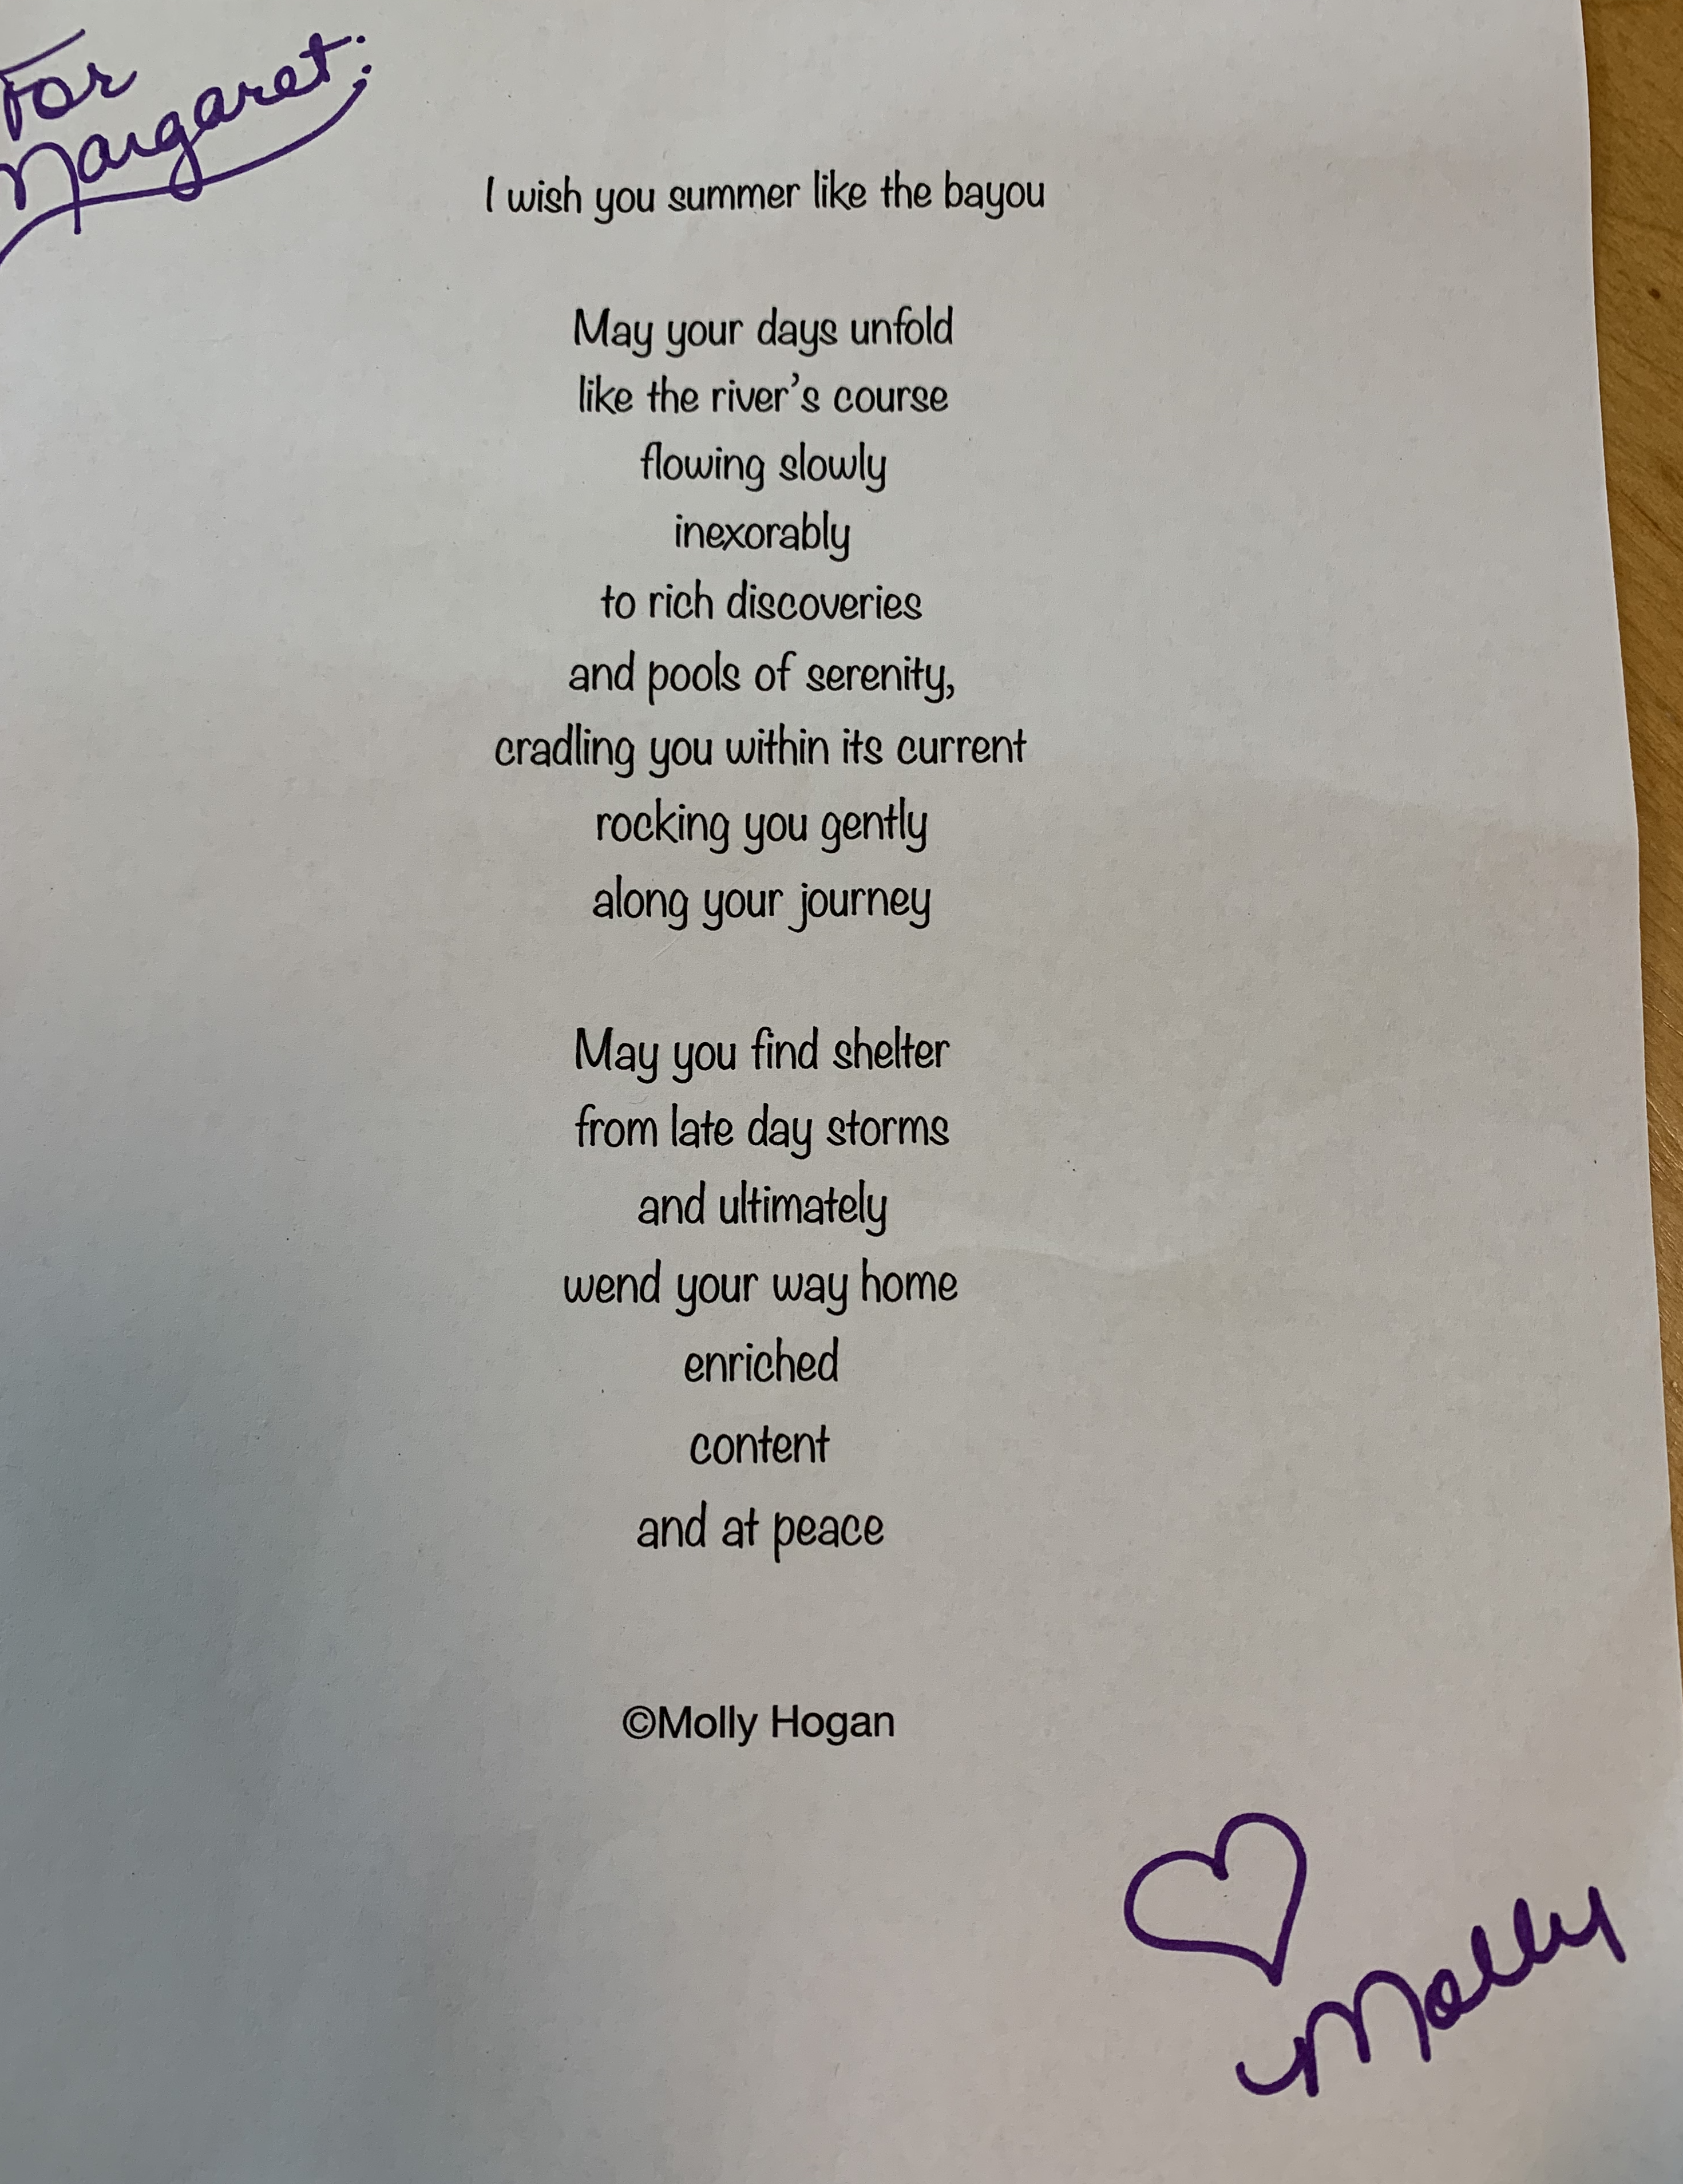 For
Margaret:
I wish you summer like the bayou
May your days unfold
like the river’s course
flowing slowly
inexorably
to rich discoveries
and pools of serenity,
cradling you within its current
rocking you gently
along your journey
May you find shelter
from late day storms
and ultimately
wend your way home
enriched
content
and at peace
©Molly Hogan
Molly